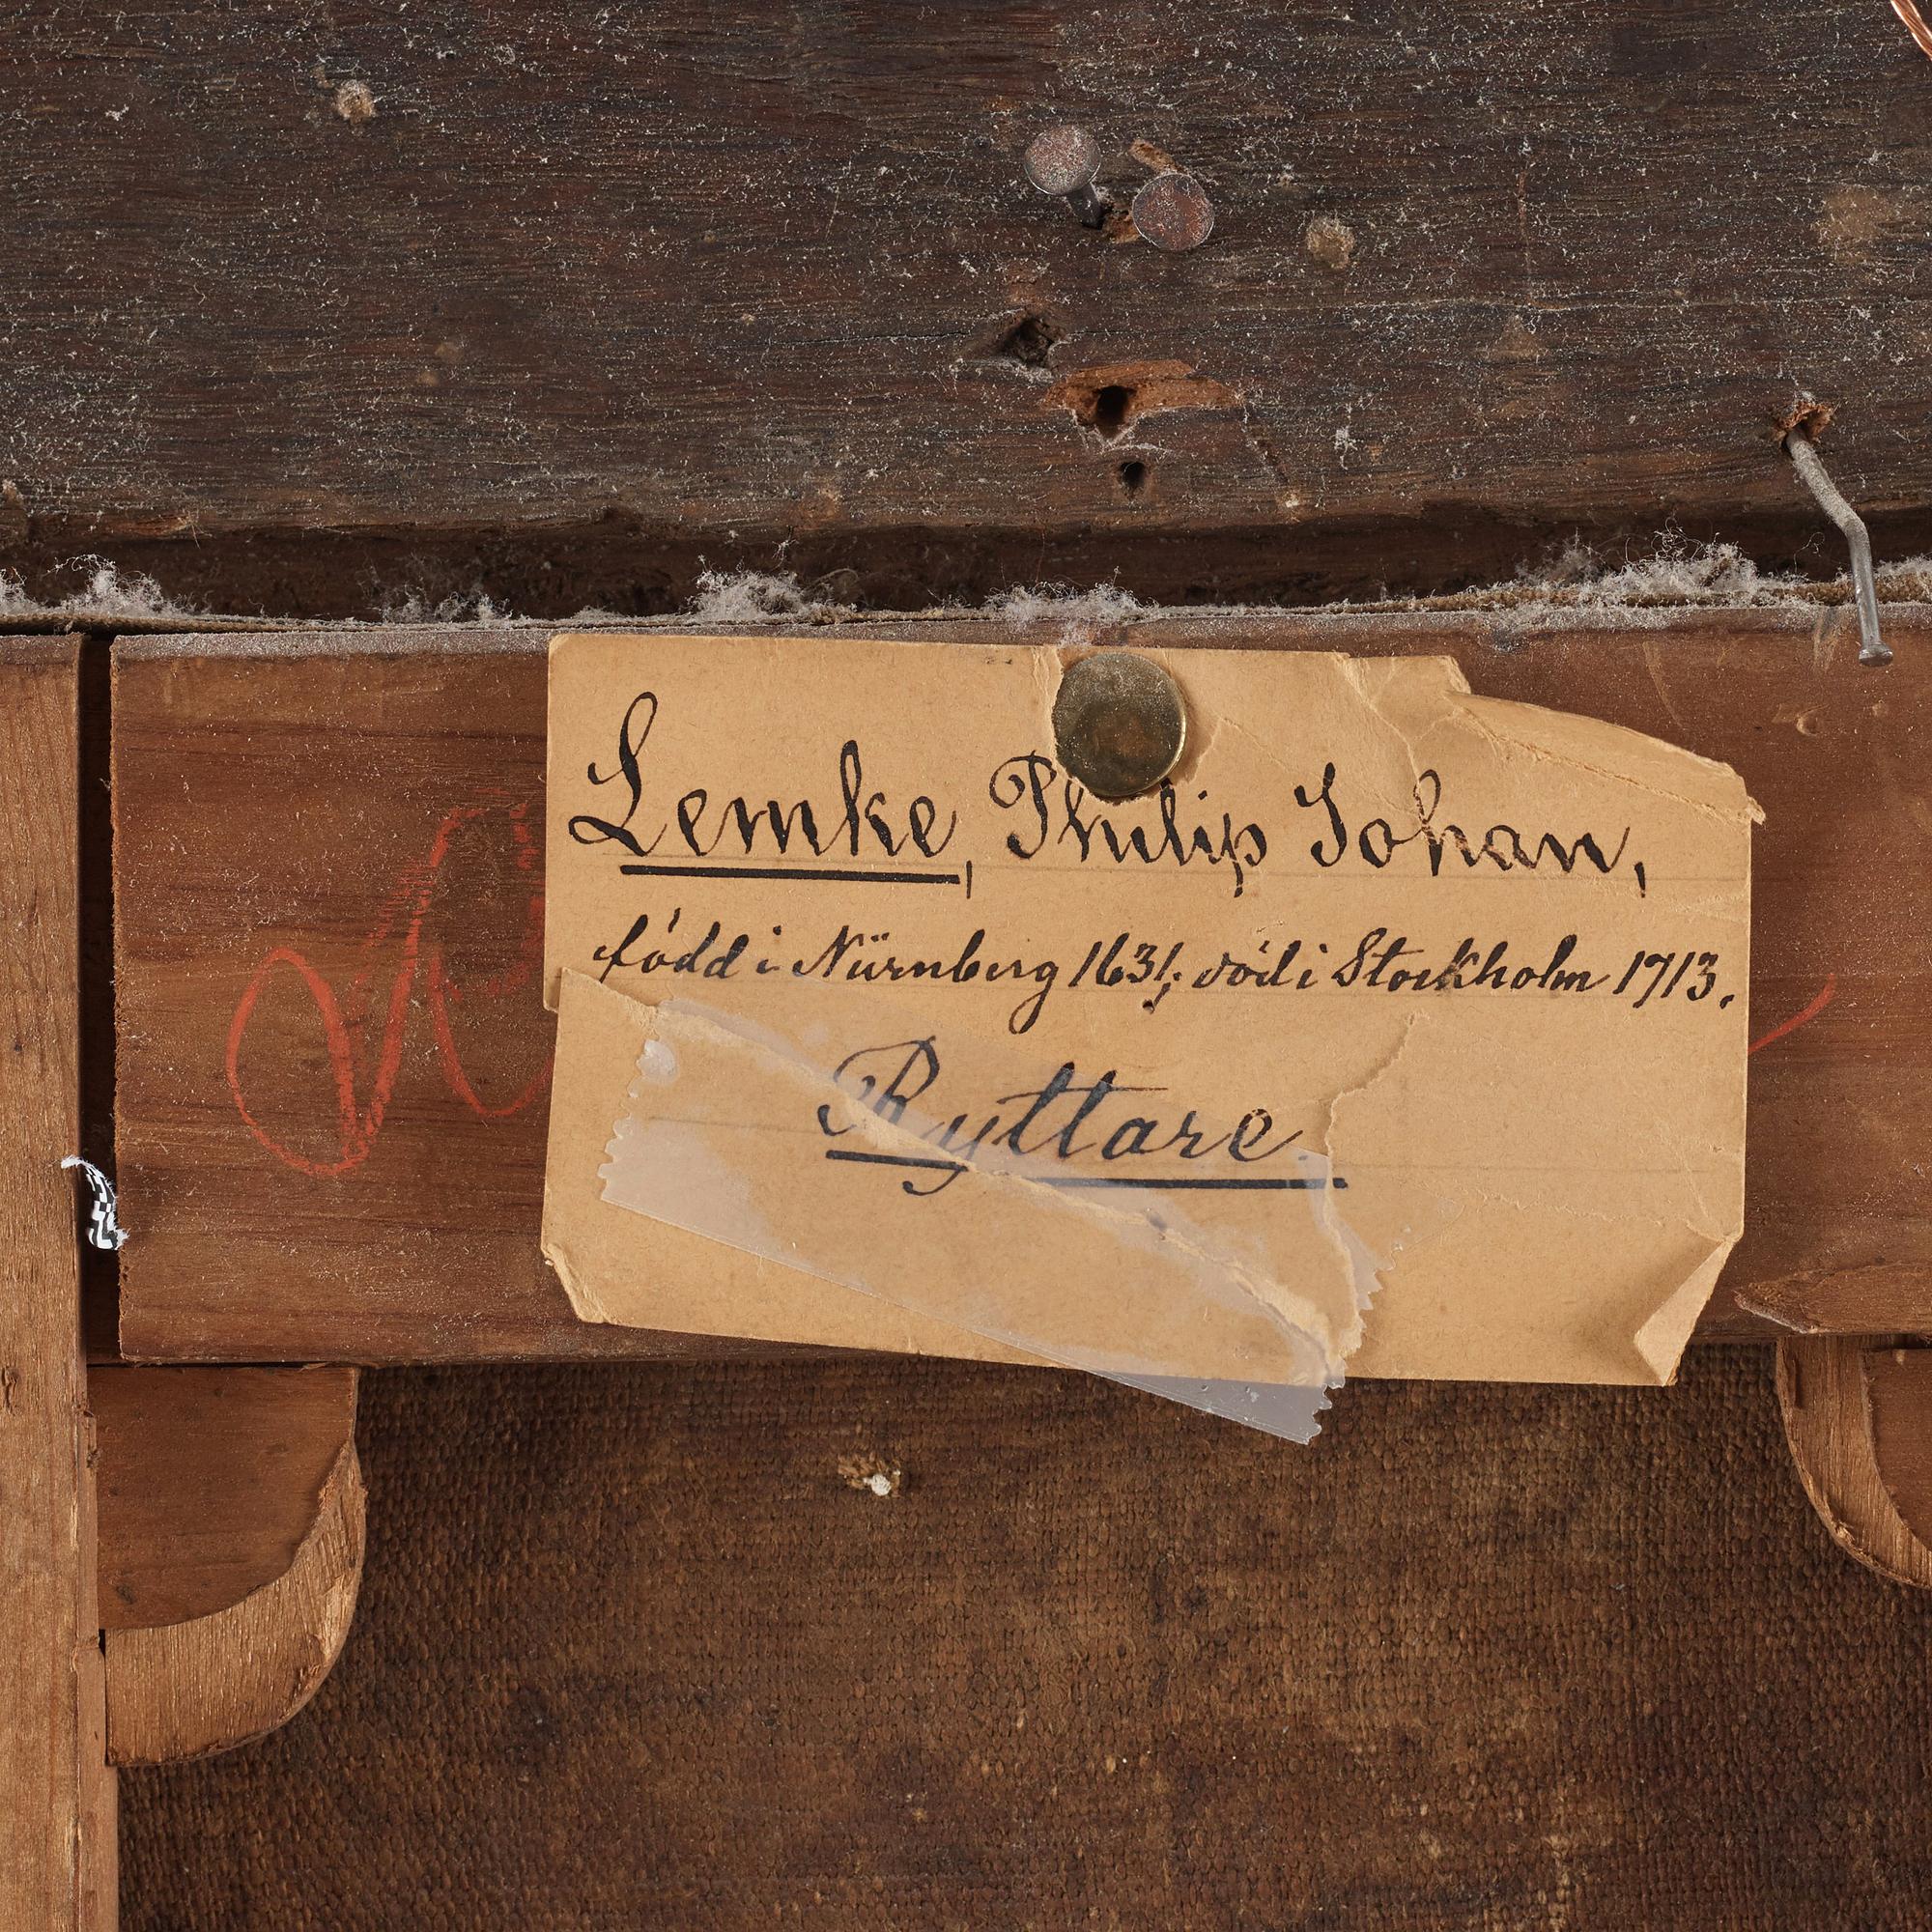 Lemke, Philip Johan,
född i Nürnberg 1631; död i Stockholm 1713.
Ryttare.